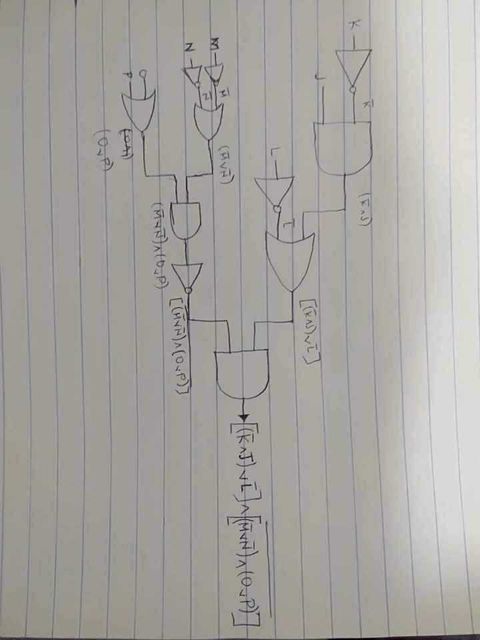 K
K̅
J
(K̅∧J)
L
L̅
[(K̅∧J)∨L̅]
M
M̅
N
N̅
(M̅∨N̅)
O
P
(O∨P)
(M̅∨N̅)∧(O∨P)
[(M̅∨N̅)∧(O∨P)]
[(K̅∧J)∨L̅]∧[(M̅∨N̅)∧(O∨P)]